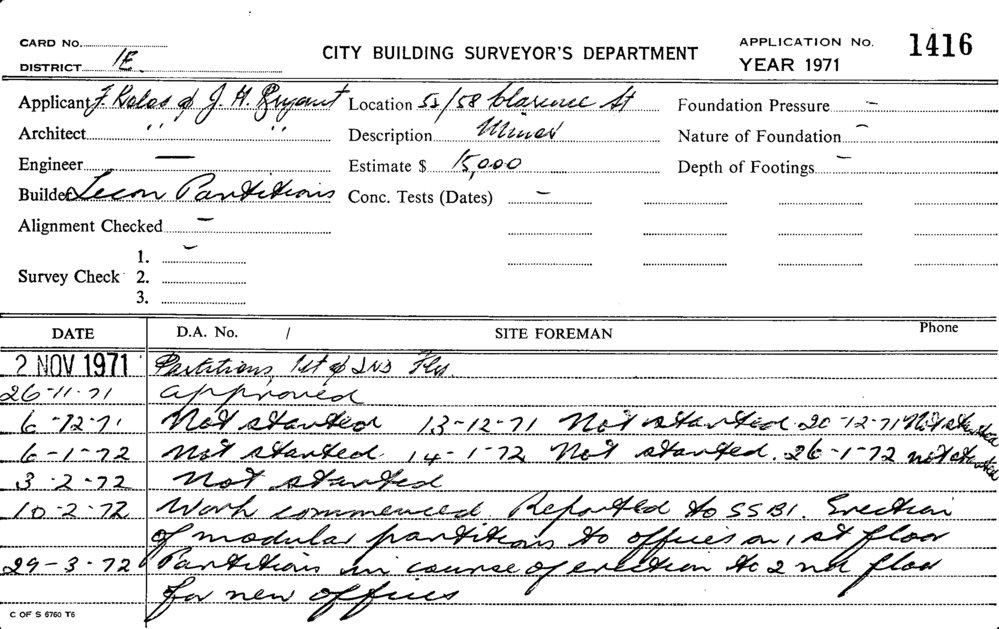 CARD No.
DISTRICT 1E.
CITY BUILDING SURVEYOR'S DEPARTMENT
APPLICATION No. 1416
YEAR 1971
Applicant & J. H. Bryant
Location 52/58 Clarence St
Foundation Pressure -
Architect " "
Description Minor
Nature of Foundation -
Engineer —
Estimate $ 15,000
Depth of Footings. -
Builder Lecon Partitions
Conc. Tests (Dates) -
Alignment Checked -
Survey Check 1. -
2.
3.
DATE D.A. No. / SITE FOREMAN Phone
2 NOV 1971 Partitions, 1st & 2nd Flrs.
26-11-71 approved
6-12-71 Not started 13-12-71 Not started. 20-12-71 Not started
6-1-72 Not started. 14-1-72 Not started. 26-1-72 not started
3-2-72 Not started
10-2-72 Work commenced. Reported to SSBI. Erection
of modular partitions to offices on 1st floor
29-3-72 Partitions in course of erection to 2nd floor
for new offices
C OF S 6760 T6